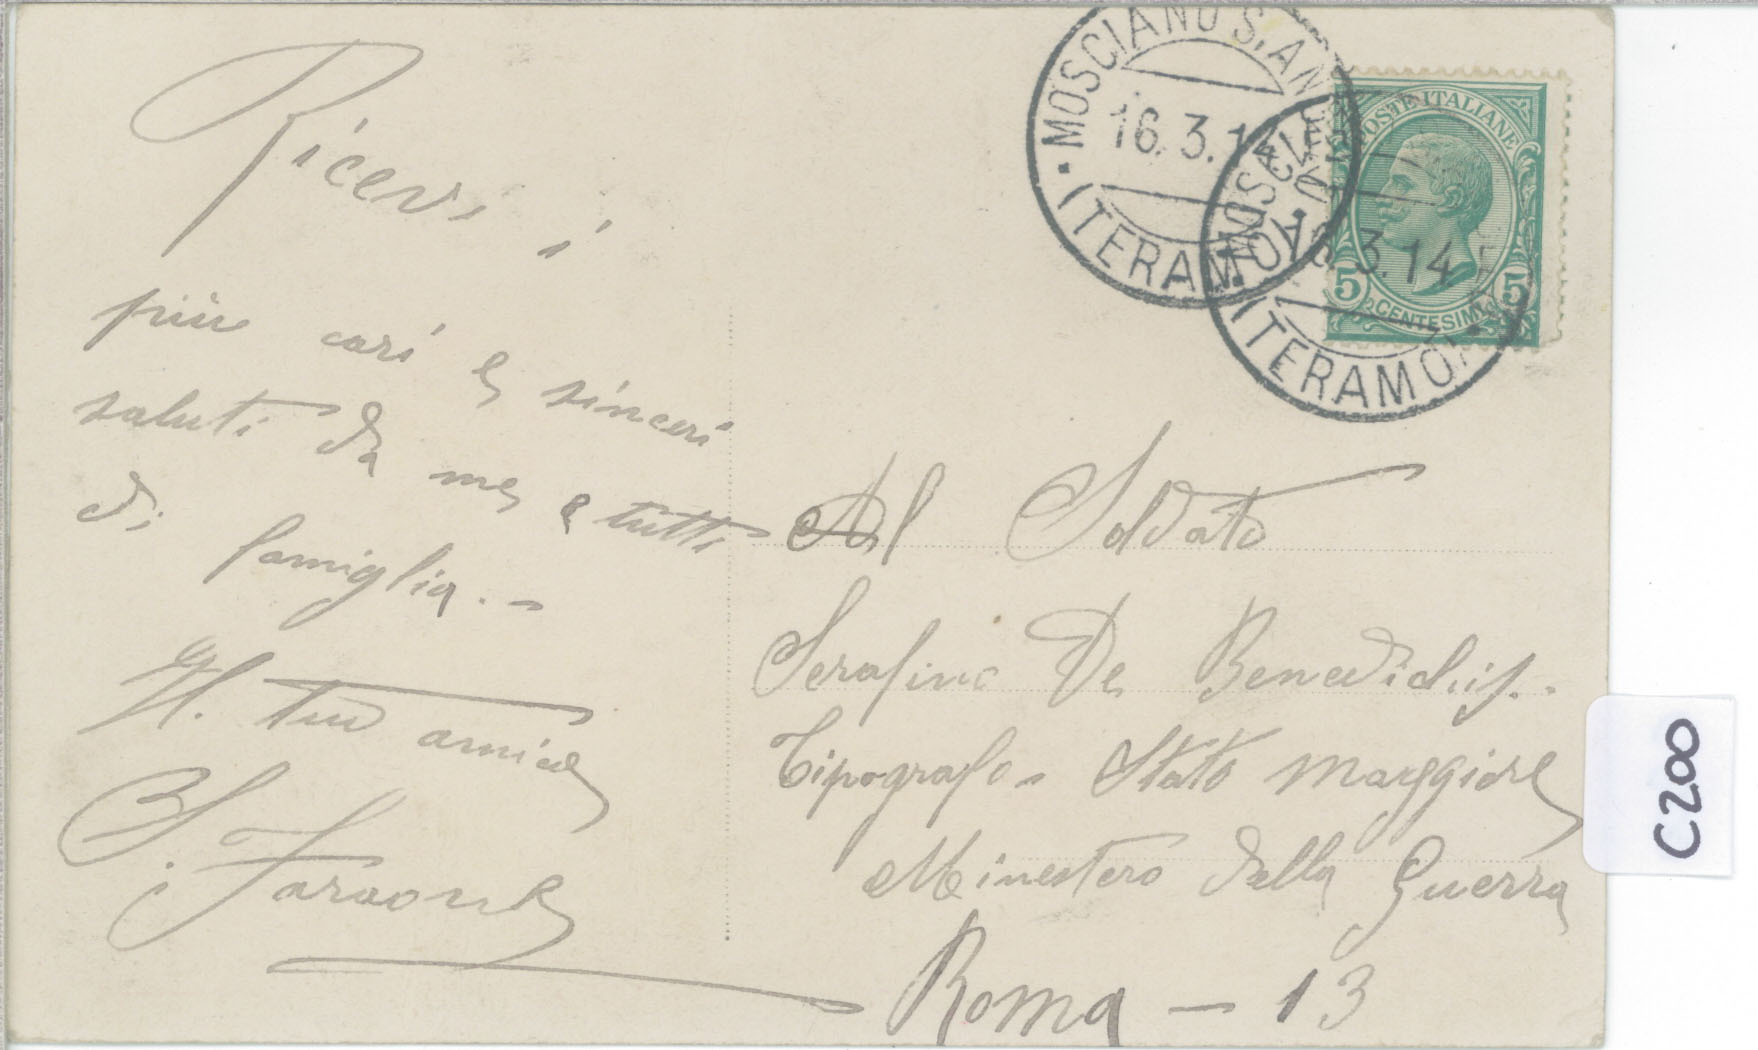 Ricevi i
più cari e sinceri
saluti da me e tutti
di famiglia. -
Il tuo amico
B. Faraone
MOSCIANO S. AN
16.3.14
(TERAMO)
MOSCIANO
16.3.14
(TERAMO)
POSTE ITALIANE
5 CENTESIMI 5
Al Soldato
Serafino De
Tipografo - Stato Maggiore
Minestero della Guerra
Roma - 13
C200